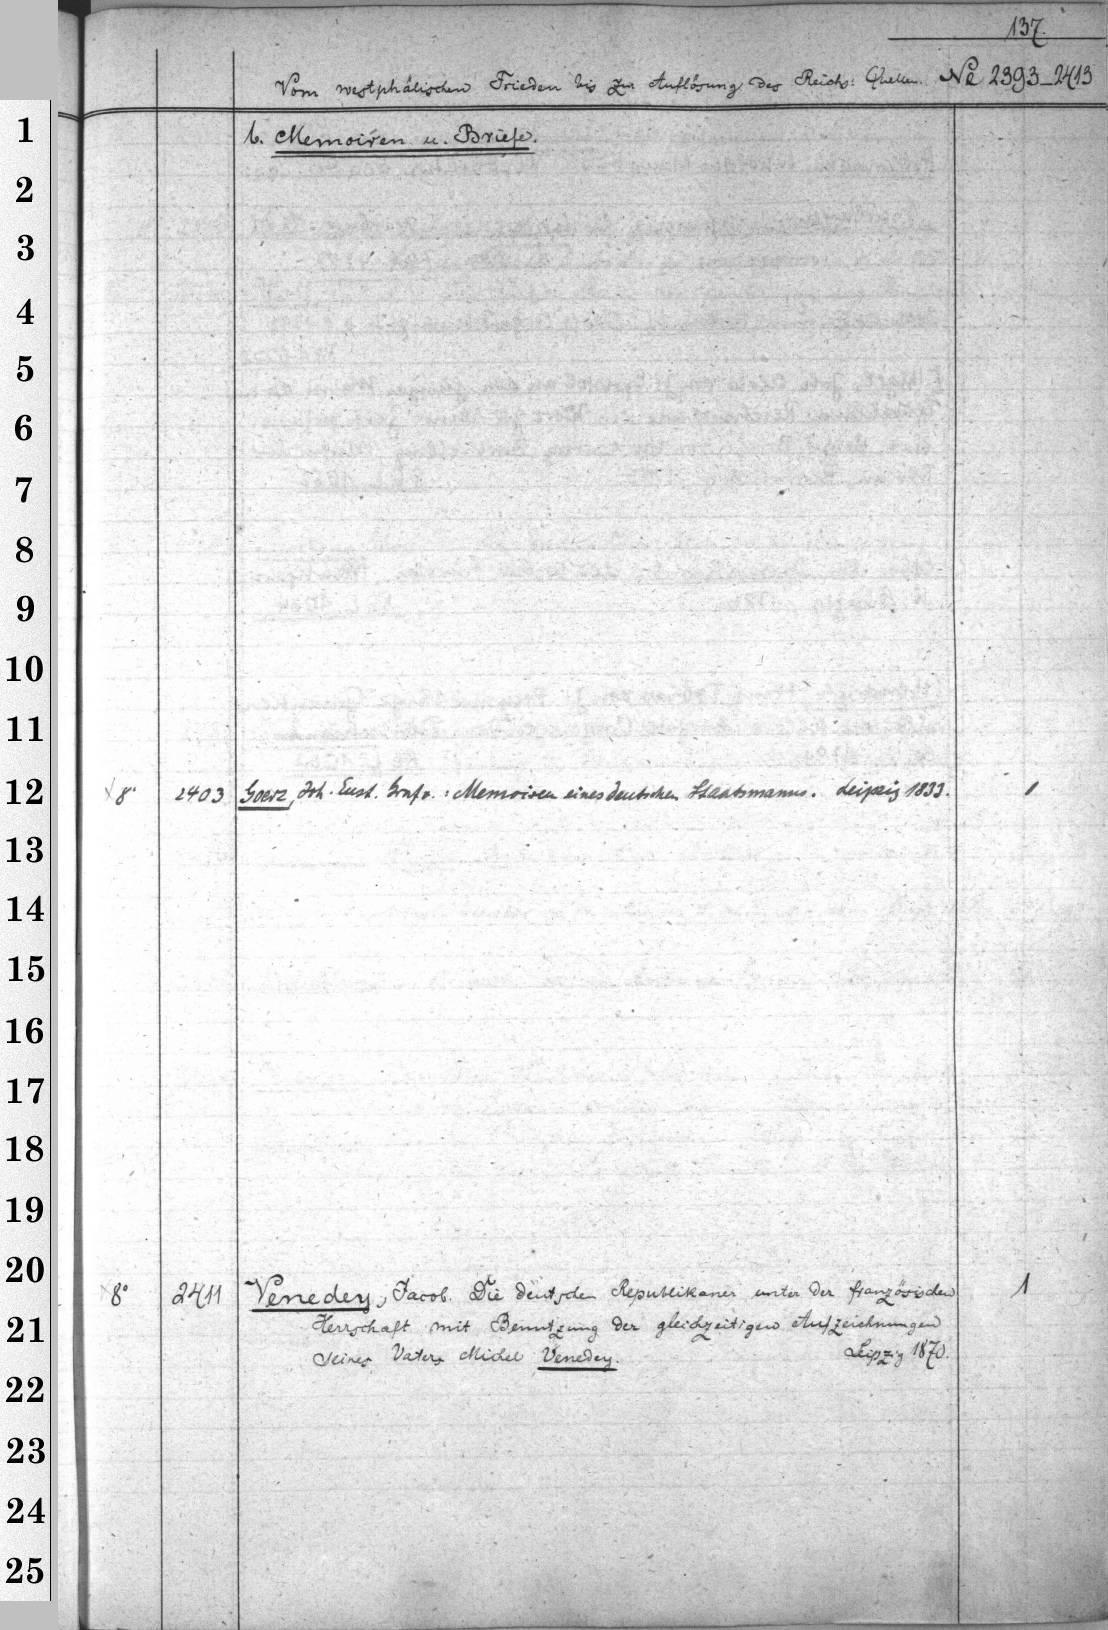 137.
Vom westphälischen Frieden bis zur Auflösung des Reichs: Quellen. No 2393-2413
1
b. Memoiren u. Briefe.
2
3
4
5
6
7
8
9
10
11
12
8° 2403 Goerz, Joh. Eust. Graf v.: Memoiren eines deutschen Staatsmanns. Leipzig 1833. 1
13
14
15
16
17
18
19
20
8° 2411 Venedey, Jacob. Die deutschen Republikaner unter der französischen 1
21
Herrschaft mit Benutzung der gleichzeitigen Aufzeichnungen
seines Vaters Michel Venedey. Leipzig 1870.
22
23
24
25